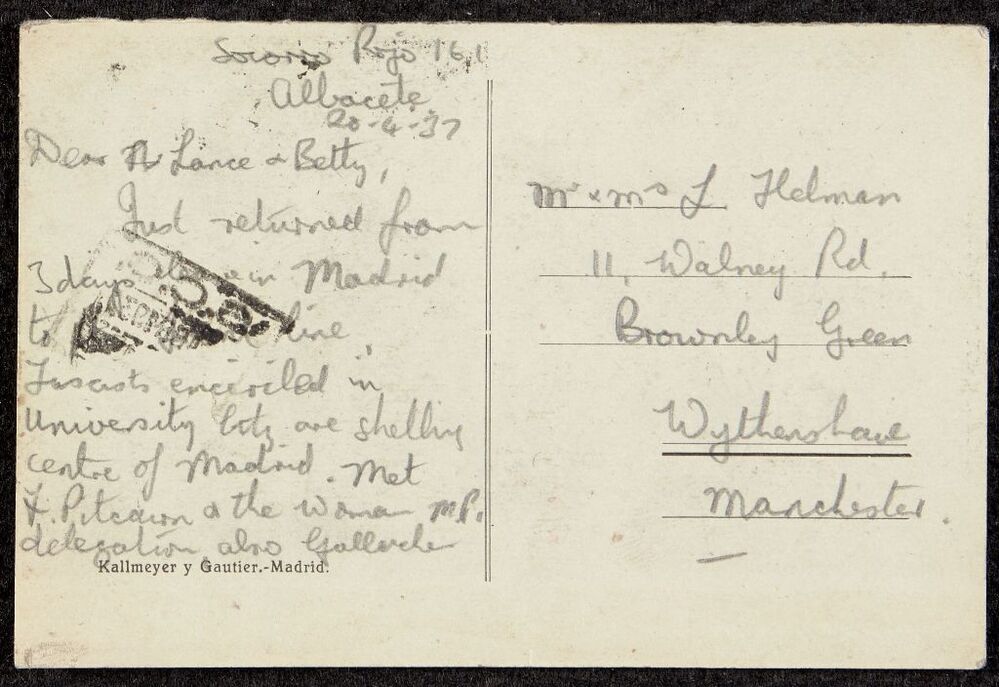 Socorro Rojo 161
Albacete
20-4-37
Dear Lance & Betty,
Just returned from
3 days in Madrid
to line.
Fascists encircled in
University City are shelling
centre of Madrid. Met
F. Pitcairn & the woman M.P.
delegation, also Gallacher
Kallmeyer y Gautier.-Madrid.
Mr & Mrs L Helman
11, Walney Rd.
Brownley Green
Wythenshawe
Manchester.